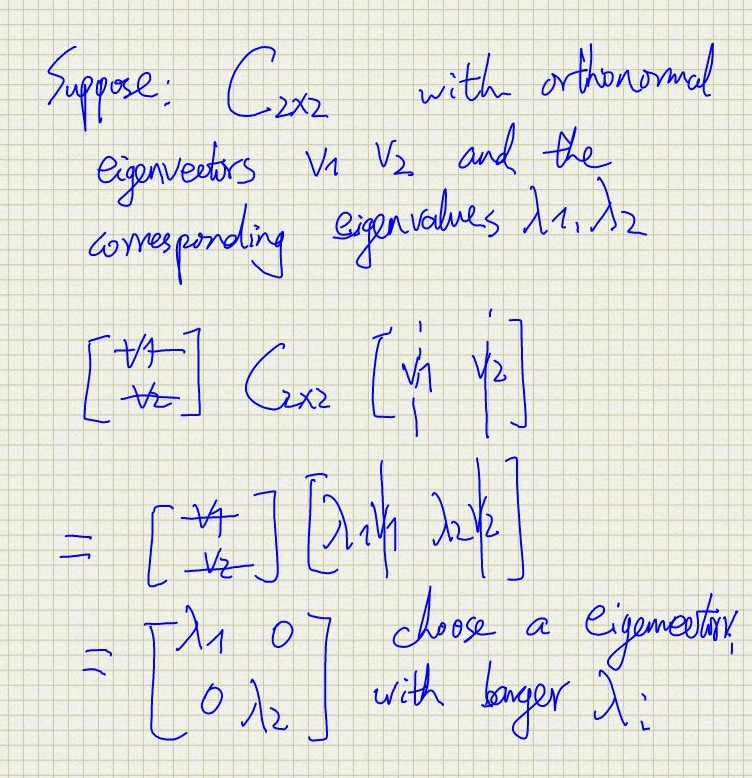 Suppose: C2x2 with orthonormal
eigenvectors V1 V2 and the
corresponding eigenvalues λ1, λ2
[ V1 V2 ] C2x2 [ V1 V2 ]
= [ V1 V2 ] [ λ1V1 λ2V2 ]
= [ λ1 0 0 λ2 ] choose a eigenvector,
with larger λi